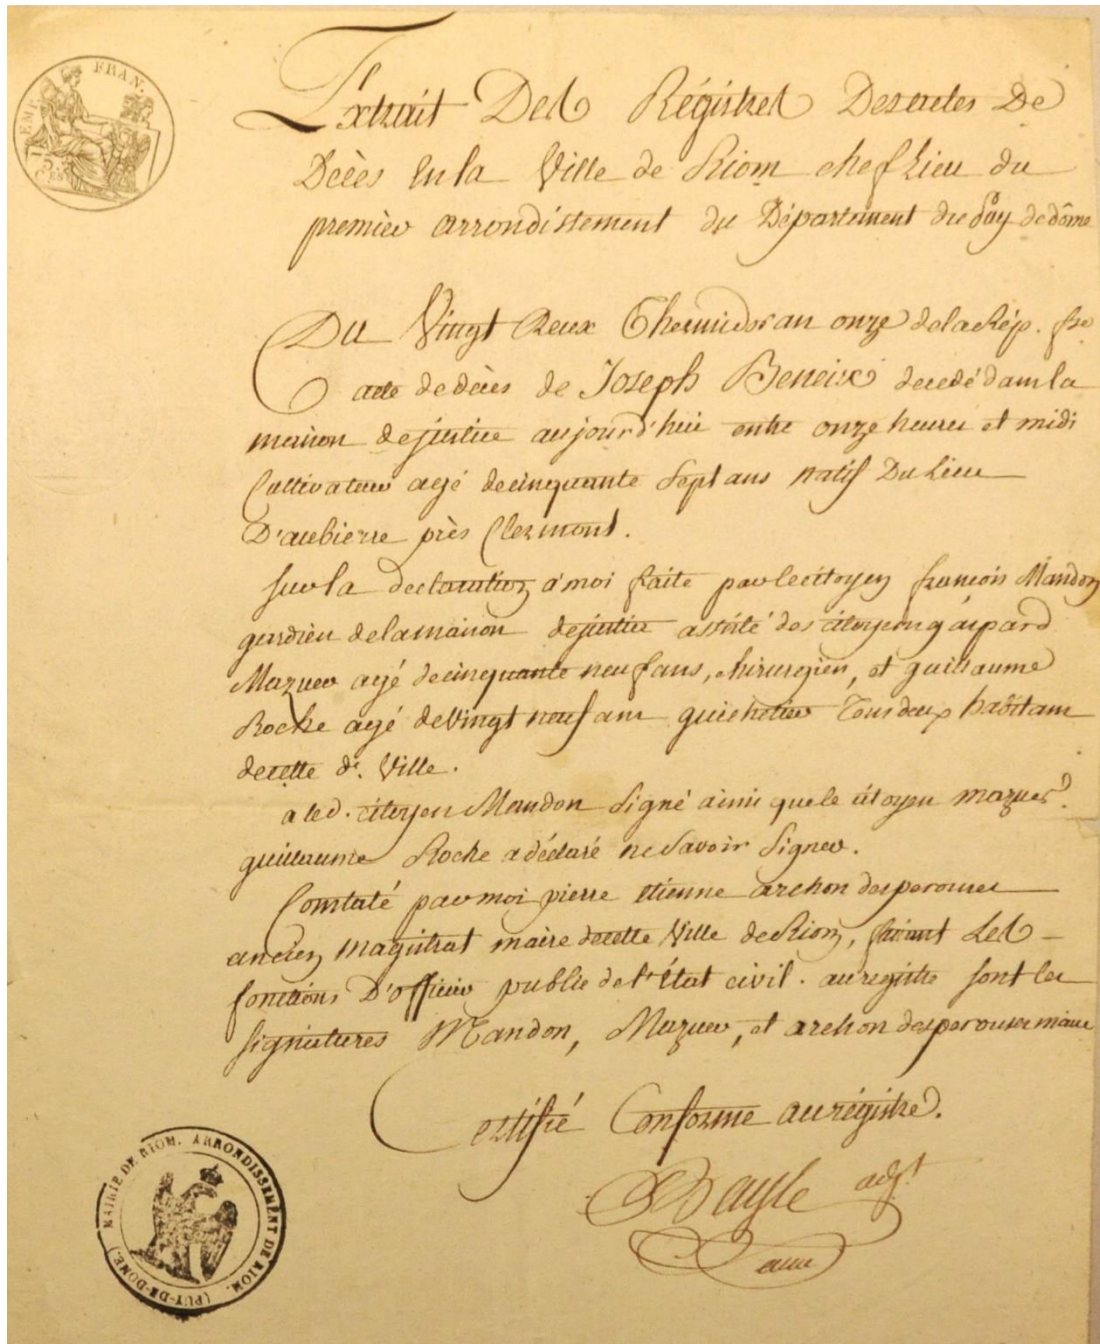 EMP. FRAN.
Extrait Des Régistres Des actes De
Décès En la Ville de Riom chef Lieu du
premier arrondissement du Département du Puy de dôme
Du Vingt Deux Thermidor an onze de la Rép. fse
acte de décès de Joseph Beneix decedé dans la
maison de justice aujourd'hui entre onze heures et midi
Cultivateur agé de cinquante Sept ans natif Du Lieu
D'aubierre près Clermont.
sur la declaration à moi faite par le citoyen françois Mandon
gardien de la maison de justice assisté des citoyens gaspard
Mazuer agé de cinquante neuf ans, chirurgien, et guillaume
Roche agé de vingt neuf ans guichetier Tous deux habitans
de cette de. Ville.
a led. citoyen Mandon Signé ainsi que le citoyen mazuer.
guillaume Roche a déclaré ne Savoir Signer.
Constaté par moi pierre etienne archon desperouses
ancien magistrat maire de cette Ville de Riom, faisant Les
fonctions D'officier public de l'État civil. au registre sont les
signatures Mandon, Mazuer, et archon desperouses maire
Certifié Conforme au régistre.
Bayle adjt
MAIRIE DE RIOM. ARRONDISSEMENT DE RIOM. (PUY-DE-DOME.)